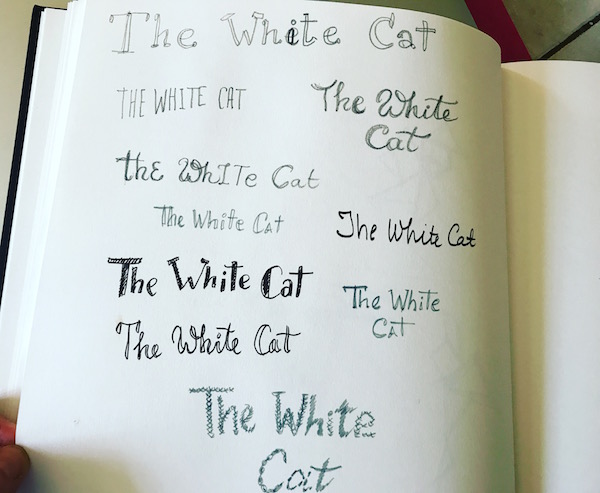 The White Cat
THE WHITE CAT
The White
Cat
thE WhITe Cat
The White CAT
The White Cat
The White Cat
The White
CAT
The White Cat
The White
Cat